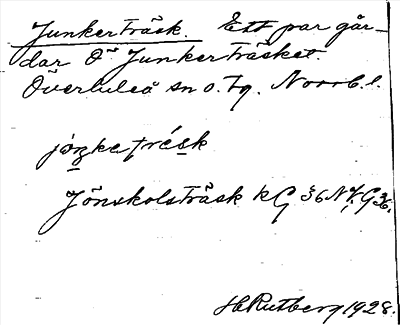 Junkerträsk. Ett par går-
dar Ö Junkerträsket.
Överluleå sn o. tg. Norrb. l.
Jönskolsträsk kG 36 NV, G 36.
H Rutberg 1928.